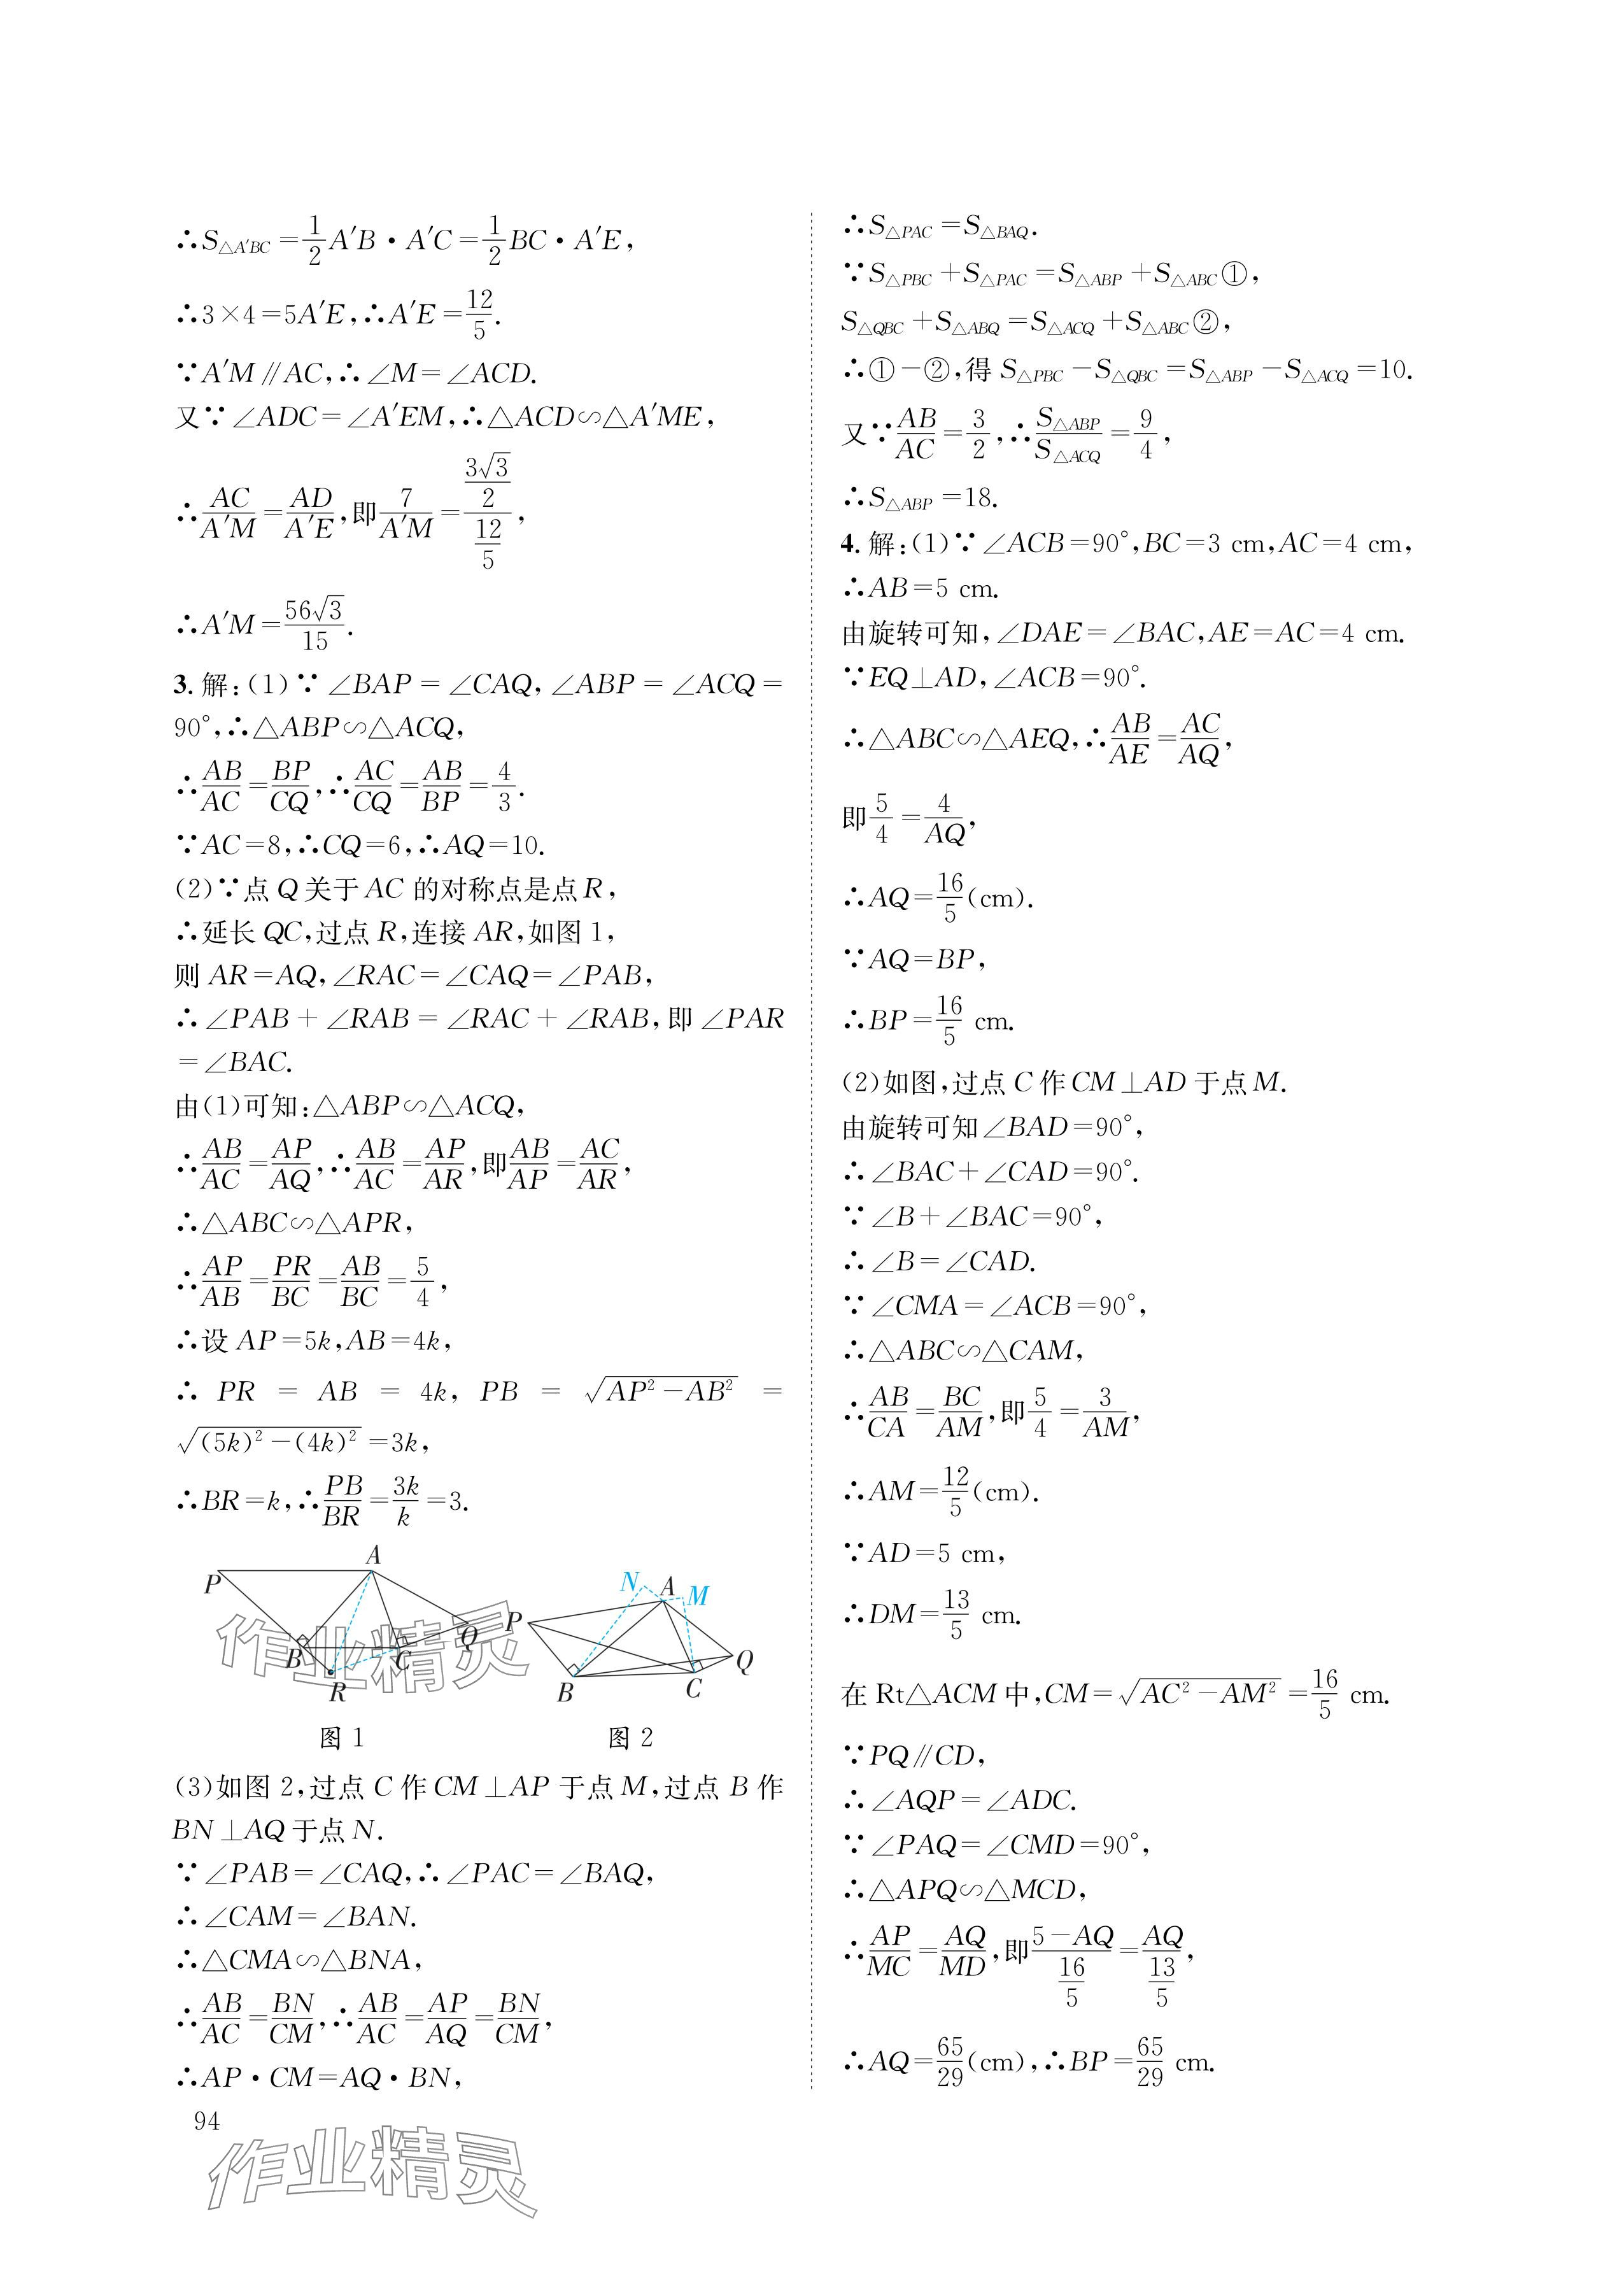 ∴S△A′BC=1/2A′B·A′C=1/2BC·A′E,
∴3×4=5A′E,∴A′E=12/5.
∵A′M∥AC,∴∠M=∠ACD.
又∵∠ADC=∠A′EM,∴△ACD∽△A′ME,
∴AC/A′M=AD/A′E,即7/A′M=(3√3/2)/(12/5),
∴A′M=56√3/15.
3.解:(1)∵∠BAP=∠CAQ,∠ABP=∠ACQ=
90°,∴△ABP∽△ACQ,
∴AB/AC=BP/CQ,∴AC/CQ=AB/BP=4/3.
∵AC=8,∴CQ=6,∴AQ=10.
(2)∵点Q关于AC的对称点是点R,
∴延长QC,过点R,连接AR,如图1,
则AR=AQ,∠RAC=∠CAQ=∠PAB,
∴∠PAB+∠RAB=∠RAC+∠RAB,即∠PAR
=∠BAC.
由(1)可知:△ABP∽△ACQ,
∴AB/AC=AP/AQ,∴AB/AC=AP/AR,即AB/AP=AC/AR,
∴△ABC∽△APR,
∴AP/AB=PR/BC=AB/BC=5/4,
∴设AP=5k,AB=4k,
∴PR=AB=4k,PB=√(AP²-AB²)=
√((5k)²-(4k)²)=3k,
∴BR=k,∴PB/BR=3k/k=3.
A
P
B
C
Q
R
图1
N
A
M
P
Q
B
C
图2
(3)如图2,过点C作CM⊥AP于点M,过点B作
BN⊥AQ于点N.
∵∠PAB=∠CAQ,∴∠PAC=∠BAQ,
∴∠CAM=∠BAN.
∴△CMA∽△BNA,
∴AB/AC=BN/CM,∴AB/AC=AP/AQ=BN/CM,
∴AP·CM=AQ·BN,
∴S△PAC=S△BAQ.
∵S△PBC+S△PAC=S△ABP+S△ABC①,
S△QBC+S△ABQ=S△ACQ+S△ABC②,
∴①-②,得S△PBC-S△QBC=S△ABP-S△ACQ=10.
又∵AB/AC=3/2,∴S△ABP/S△ACQ=9/4,
∴S△ABP=18.
4.解:(1)∵∠ACB=90°,BC=3 cm,AC=4 cm,
∴AB=5 cm.
由旋转可知,∠DAE=∠BAC,AE=AC=4 cm.
∵EQ⊥AD,∠ACB=90°.
∴△ABC∽△AEQ,∴AB/AE=AC/AQ,
即5/4=4/AQ,
∴AQ=16/5(cm).
∵AQ=BP,
∴BP=16/5 cm.
(2)如图,过点C作CM⊥AD于点M.
由旋转可知∠BAD=90°,
∴∠BAC+∠CAD=90°.
∵∠B+∠BAC=90°,
∴∠B=∠CAD.
∵∠CMA=∠ACB=90°,
∴△ABC∽△CAM,
∴AB/CA=BC/AM,即5/4=3/AM,
∴AM=12/5(cm).
∵AD=5 cm,
∴DM=13/5 cm.
在Rt△ACM中,CM=√(AC²-AM²)=16/5 cm.
∵PQ∥CD,
∴∠AQP=∠ADC.
∵∠PAQ=∠CMD=90°,
∴△APQ∽△MCD,
∴AP/MC=AQ/MD,即(5-AQ)/(16/5)=AQ/(13/5),
∴AQ=65/29(cm),∴BP=65/29 cm.
94
作业精灵
作业精灵